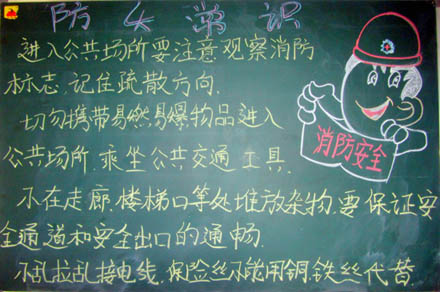 防火常识
进入公共场所要注意观察消防
标志,记住疏散方向.
切勿携带易燃易爆物品进入
公共场所.乘坐公共交通工具.
消防安全
不在走廊.楼梯口等处堆放杂物.要保证安
全通道和安全出口的通畅.
不乱拉乱接电线.保险丝不能用铜.铁丝代替.